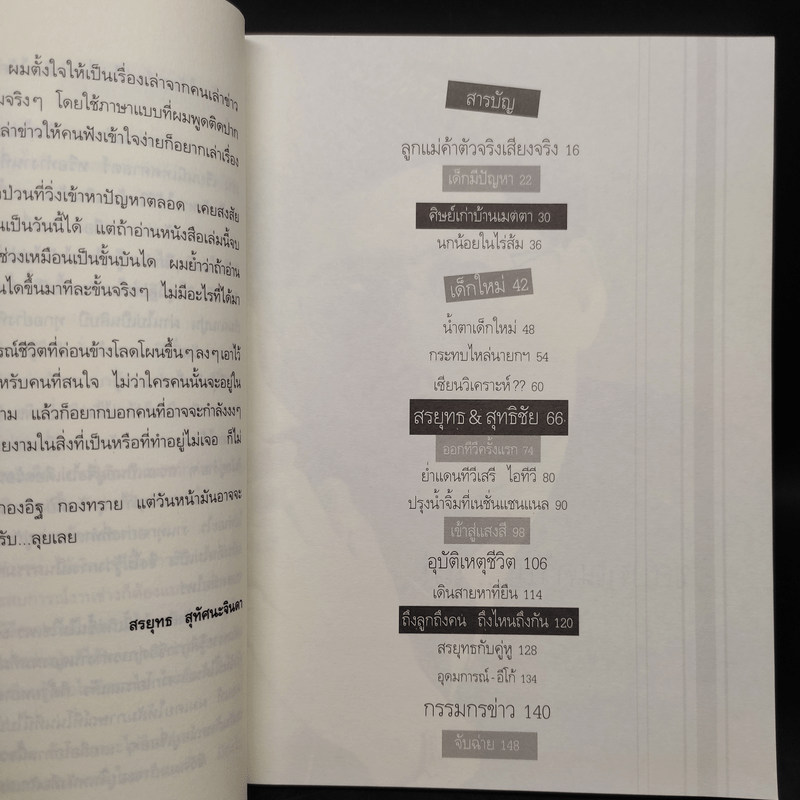 ผมตั้งใจให้เป็นเรื่องเล่าจากคนเล่าข่าว
จริงๆ โดยใช้ภาษาแบบที่ผมพูดติดปาก
ล่าข่าวให้คนฟังเข้าใจง่ายก็อยากเล่าเรื่อง
ป่วนที่วิ่งเข้าหาปัญหาตลอด เคยสงสัย
นเป็นวันนี้ได้ แต่ถ้าอ่านหนังสือเล่มนี้จบ
ช่วงเหมือนเป็นขั้นบันได ผมย้ำว่าถ้าอ่าน
นไดขึ้นมาทีละขั้นจริงๆ ไม่มีอะไรที่ได้มา
รณ์ชีวิตที่ค่อนข้างโลดโผนขึ้นๆลงๆเอาไว้
หรับคนที่สนใจ ไม่ว่าใครคนนั้นจะอยู่ใน
าม แล้วก็อยากบอกคนที่อาจจะกำลังงงๆ
ยงามในสิ่งที่เป็นหรือที่ทำอยู่ไม่เจอ ก็ไม่
กองอิฐ กองทราย แต่วันหน้ามันอาจจะ
รับ...ลุยเลย
สรยุทธ สุทัศนะจินดา
สารบัญ
ลูกแม่ค้าตัวจริงเสียงจริง 16
เด็กมีปัญหา 22
ศิษย์เก่าบ้านเมตตา 30
นกน้อยในไร่ส้ม 36
เด็กใหม่ 42
น้ำตาเด็กใหม่ 48
กระทบไหล่นายกฯ 54
เซียนวิเคราะห์?? 60
สรยุทธ & สุทธิชัย 66
ออกทีวีครั้งแรก 74
ย่ำแดนทีวีเสรี ไอทีวี 80
ปรุงน้ำจิ้มที่เนชั่นแชนแนล 90
เข้าสู่แสงสี 98
อุบัติเหตุชีวิต 106
เดินสายหาที่ยืน 114
ถึงลูกถึงคน ถึงไหนถึงกัน 120
สรยุทธกับคู่หู 128
อุดมการณ์-อีโก้ 134
กรรมกรข่าว 140
จับฉ่าย 148